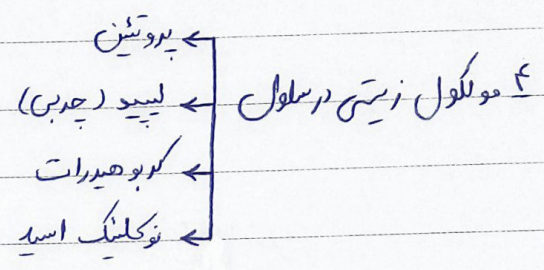 ۴ مولکول زیستی در سلول
پروتئین
لیپید (چربی)
کربوهیدرات
نوکلئیک اسید